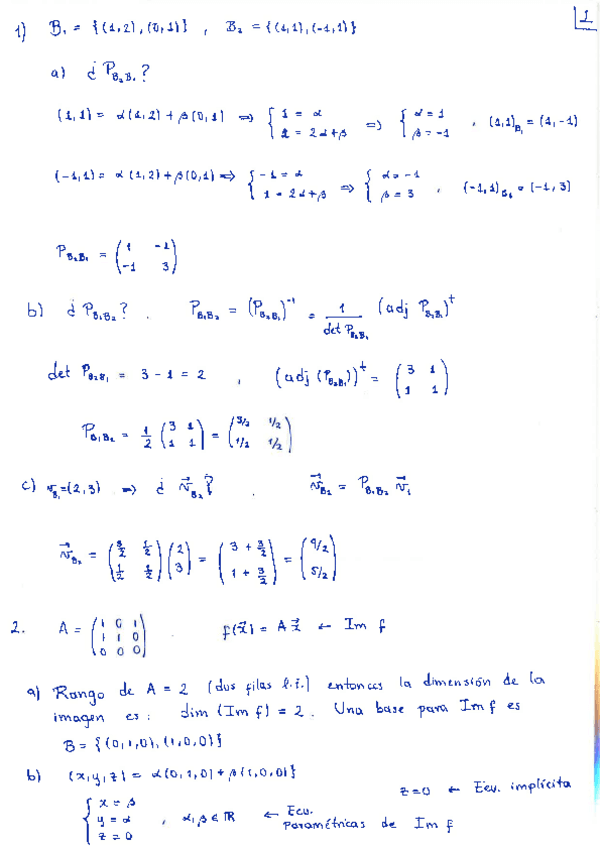 1
1) B₁ = {(1,2), (0,1)} , B₂ = {(1,1), (-1,1)}
a) ¿ P_{B₂B₁} ?
(1,1) = α(1,2) + β(0,1) ⇒ { 1 = α ; 1 = 2α+β ⇒ { α = 1 ; β = -1 , (1,1)_{B₁} = (1,-1)
(-1,1) = α(1,2) + β(0,1) ⇒ { -1 = α ; 1 = 2α+β ⇒ { α = -1 ; β = 3 , (-1,1)_{B₁} = (-1,3)
P_{B₂B₁} = ( 1 -1 ; -1 3 )
b) ¿ P_{B₁B₂} ? . P_{B₁B₂} = (P_{B₂B₁})⁻¹ = 1 / det P_{B₂B₁} (adj P_{B₂B₁})ᵗ
det P_{B₂B₁} = 3 - 1 = 2 , (adj (P_{B₂B₁}))ᵗ = ( 3 1 ; 1 1 )
P_{B₁B₂} = 1/2 ( 3 1 ; 1 1 ) = ( 3/2 1/2 ; 1/2 1/2 )
c) v_{B₁} = (2,3) ⇒ ¿ v⃗_{B₂} ? . v⃗_{B₂} = P_{B₁B₂} v⃗₁
v⃗_{B₂} = ( 3/2 1/2 ; 1/2 1/2 ) ( 2 ; 3 ) = ( 3 + 3/2 ; 1 + 3/2 ) = ( 9/2 ; 5/2 )
2. A = ( 1 0 1 ; 1 1 0 ; 0 0 0 ) . f(x⃗) = A x⃗ ← Im f
a) Rango de A = 2 (dos filas l.i.) entonces la dimensión de la
imagen es: dim (Im f) = 2. Una base para Im f es
B = {(0,1,0), (1,0,0)}
b) (x,y,z) = α(0,1,0) + β(1,0,0)}
z=0 ← Ecu. implícita
{ x = β ; y = α ; z = 0 , α,β ∈ ℝ ← Ecu. Paramétricas de Im f